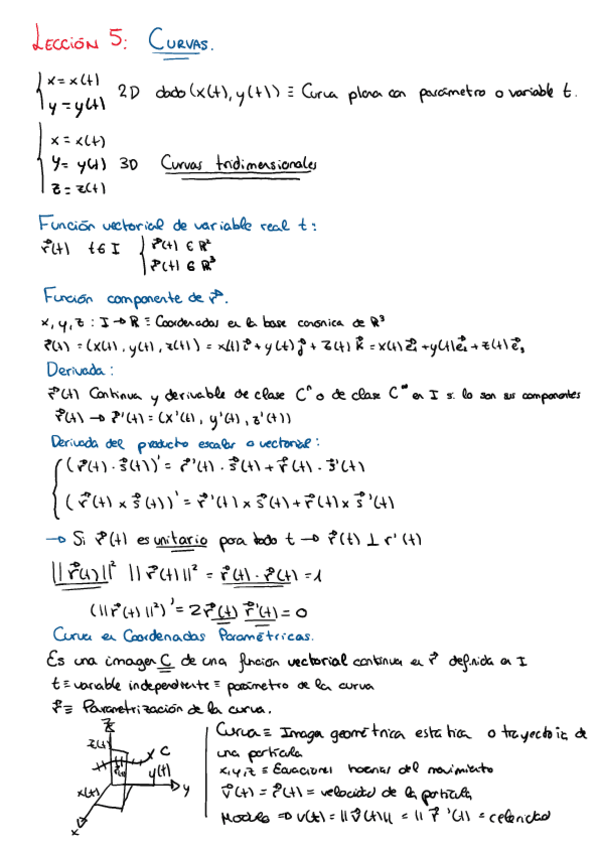 LECCIÓN 5: CURVAS.
x = x(t)
y = y(t)
2D dado (x(t), y(t)) ≡ Curva plana con parámetro o variable t.
x = x(t)
y = y(t) 3D Curvas tridimensionales
z = z(t)
Función vectorial de variable real t:
r⃗(t) t ∈ I { r⃗(t) ∈ R²
r⃗(t) ∈ R³
Función componente de r⃗.
x, y, z : I → R ≡ Coordenadas en la base canónica de R³
r⃗(t) = (x(t), y(t), z(t)) = x(t) i⃗ + y(t) j⃗ + z(t) k⃗ = x(t) e⃗₁ + y(t) e⃗₂ + z(t) e⃗₃
Derivada:
r⃗(t) Continua y derivable de clase Cⁿ o de clase C^∞ en I si lo son sus componentes
r⃗(t) → r⃗'(t) = (x'(t), y'(t), z'(t))
Derivada del producto escalar o vectorial:
(r⃗(t) · s⃗(t))' = r⃗'(t) · s⃗(t) + r⃗(t) · s⃗'(t)
(r⃗(t) × s⃗(t))' = r⃗'(t) × s⃗(t) + r⃗(t) × s⃗'(t)
→ Si r⃗(t) es unitario para todo t → r⃗(t) ⊥ r'(t)
||r⃗(t)||² ||r⃗(t)||² = r⃗(t) · r⃗(t) = 1
(||r⃗(t)||²)' = 2 r⃗(t) r⃗'(t) = 0
Curva en Coordenadas Paramétricas.
Es una imagen C de una función vectorial continua en r⃗ definida en I
t ≡ variable independiente ≡ parámetro de la curva
r⃗ ≡ Parametrización de la curva.
z
z(t)
C
y(t)
y
x(t)
x
Curva ≡ Imagen geométrica estática o trayectoria de
una partícula
x, y, z ≡ Ecuaciones horarias del movimiento
v⃗(t) = r⃗'(t) = velocidad de la partícula
Modulo ⇒ v(t) = ||v⃗(t)|| = ||r⃗'(t)|| = celeridad